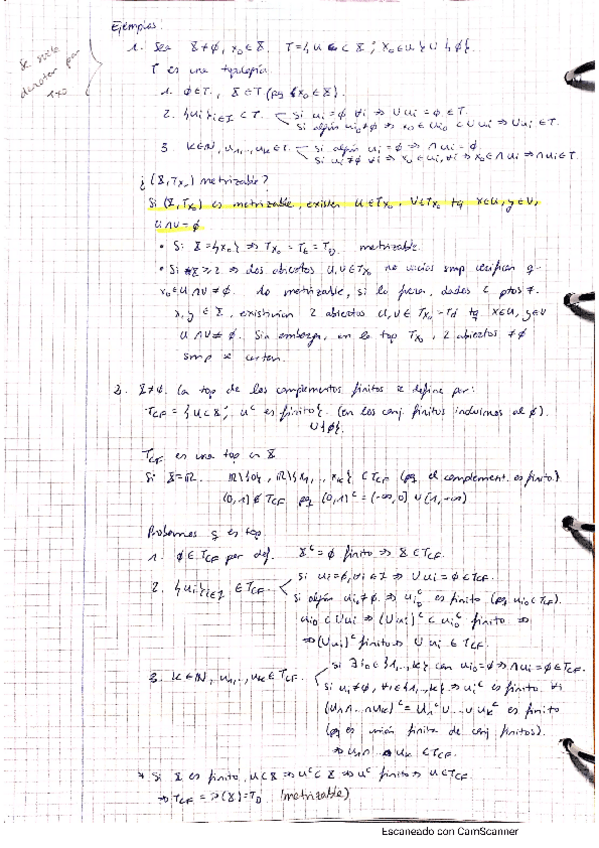 Ejemplos:
1. Sea X≠∅, x₀∈X. T={U⊂X; x₀∈U}∪{∅}.
Se suele denotar por Tx₀
T es una topología.
1. ∅∈T, X∈T (pq {x₀∈X}).
2. {Ui}i∈I ⊂ T. Si Ui=∅ ∀i ⇒ ∪Ui=∅∈T.
Si algún Ui₀≠∅ ⇒ x₀∈Ui₀ ⊂ ∪Ui ⇒ ∪Ui∈T.
3. K∈ℕ, U₁,..,Uk∈T. Si algún Ui=∅ ⇒ ∩Ui=∅.
Si Ui≠∅ ∀i ⇒ x₀∈Ui, ∀i ⇒ x₀∈∩Ui ⇒ ∩Ui∈T.
¿(X,Tx₀) metrizable?
Si (X,Tx₀) es metrizable, existen U∈Tx₀, V∈Tx₀ tq x∈U, y∈V,
U∩V=∅
• Si X={x₀} ⇒ Tx₀=Tt=TD metrizable.
• Si #X≥2 ⇒ dos abiertos U,V∈Tx₀ no vacíos smp verifican q
x₀∈U∩V≠∅. No metrizable, si lo fuera, dados 2 ptos ≠
x,y∈X, existirían 2 abiertos U,V∈Tx₀=Td tq x∈U, y∈V
U∩V=∅. Sin embargo, en la top Tx₀, 2 abiertos ≠∅
smp se cortan.
2. X≠∅. La top de los complementos finitos se define por:
TCF={U⊂X; Uᶜ es finito}. (en los conj. finitos incluimos al ∅).
∪{∅}.
TCF es una top en X
Si X=ℝ. ℝ\{0}, ℝ\{x₁,..,xk} ∈TCF (pq el complement. es finito)
(0,1)∉TCF pq (0,1)ᶜ=(-∞,0]∪[1,+∞)
Probemos q es top.
1. ∅∈TCF por def. Xᶜ=∅ finito ⇒ X∈TCF.
2. {Ui}i∈I ∈TCF. Si Ui=∅, ∀i∈I ⇒ ∪Ui=∅∈TCF.
Si algún Ui₀≠∅. ⇒ Ui₀ᶜ es finito (pq Ui₀∈TCF).
Ui₀⊂∪Ui ⇒ (∪Ui)ᶜ⊂Ui₀ᶜ finito ⇒
⇒(∪Ui)ᶜ finito ⇒ ∪Ui∈TCF.
3. K∈ℕ, U₁,..,Uk∈TCF. Si ∃i₀∈{1,..,k} con Ui₀=∅ ⇒ ∩Ui=∅∈TCF.
Si Ui≠∅, ∀i∈{1,..,k} ⇒ Uiᶜ es finito. ∀i
(U₁∩..∩Uk)ᶜ=U₁ᶜ∪..∪Ukᶜ es finito
(pq es unión finita de conj finitos).
⇒ U₁∩..∩Uk∈TCF.
* Si X es finito, U⊂X ⇒ Uᶜ⊂X ⇒ Uᶜ finito ⇒ U∈TCF
⇒ TCF=P(X)=TD (metrizable)
Escaneado con CamScanner